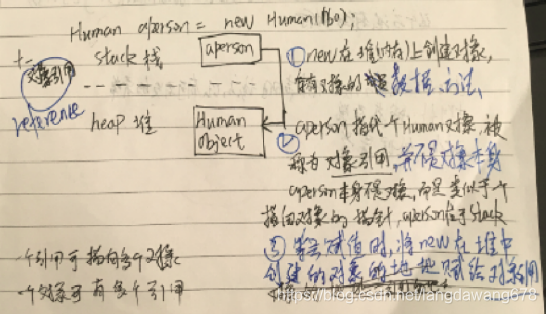 Human aperson = new Human(160);
stack 栈
aperson
对象引用
reference
heap 堆
Human
object
① new 在堆(内存)上创建对象,
对象的 数据、方法、
② aperson 指代一个Human对象, 被
称为 对象引用, 并不是对象本身
aperson本身不是对象, 而是类似于一个
指向对象的指针, aperson位于stack
③ 等号赋值时, 将new在堆中
创建的对象的地址赋给对象引用
一个引用可指向多个对象
一个对象可有多个引用
https://blog.csdn.net/fangdawang678